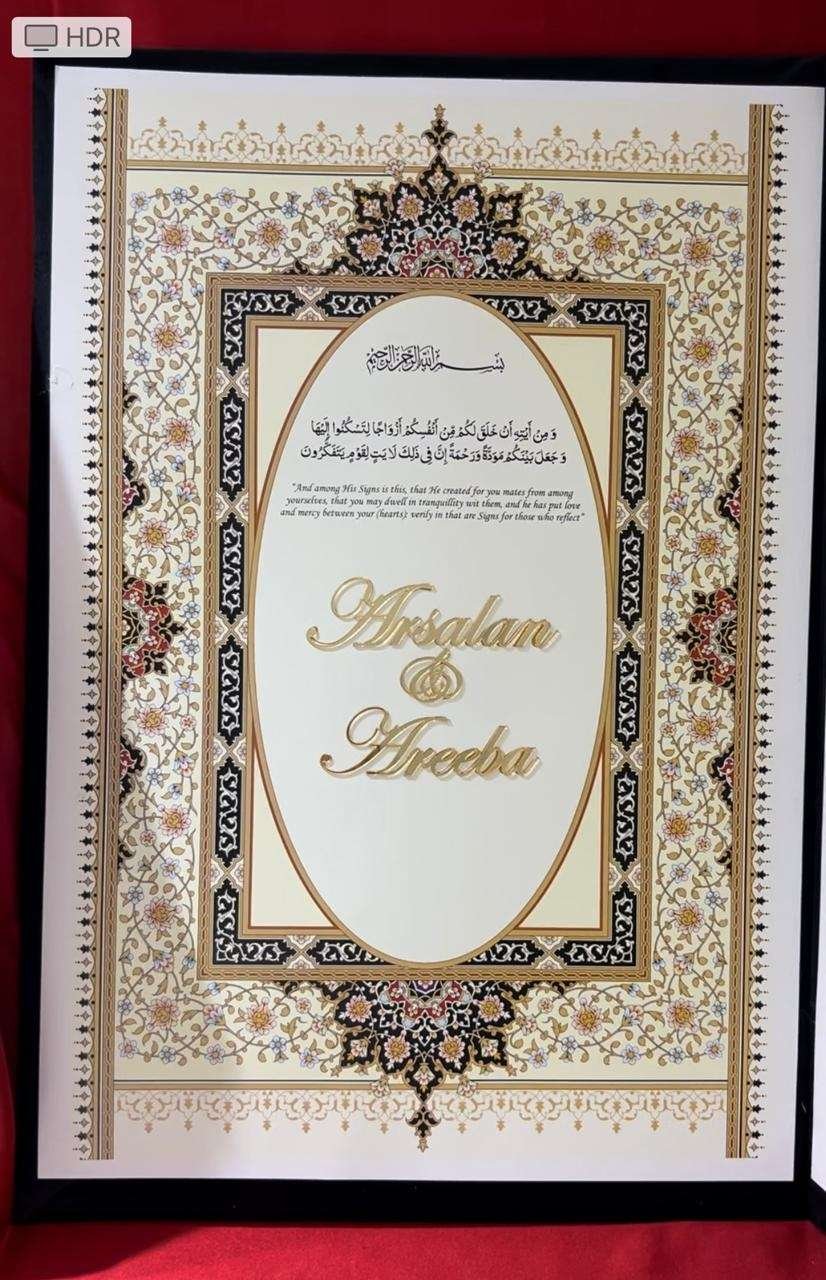 HDR
بسم الله الرحمن الرحيم
وَ مِنْ آيٰتِهٖ أَنْ خَلَقَ لَكُمْ مِّنْ أَنْفُسِكُمْ أَزْوَاجًا لِتَسْكُنُوا إِلَيْهَا
وَ جَعَلَ بَيْنَكُمْ مَوَدَّةً وَ رَحْمَةً إِنَّ فِي ذٰلِكَ لَاٰ يٰتٍ لِقَوْمٍ يَتَفَكَّرُونَ
"And among His Signs is this, that He created for you mates from among
yourselves, that you may dwell in tranquillity wit them, and he has put love
and mercy between your (hearts); verily in that are Signs for those who reflect"
Arsalan
&
Areeba